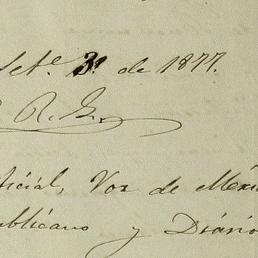 Set.e 3. de 1877.
R. G.
ficial, Voz de Méxi
publicano y Diário